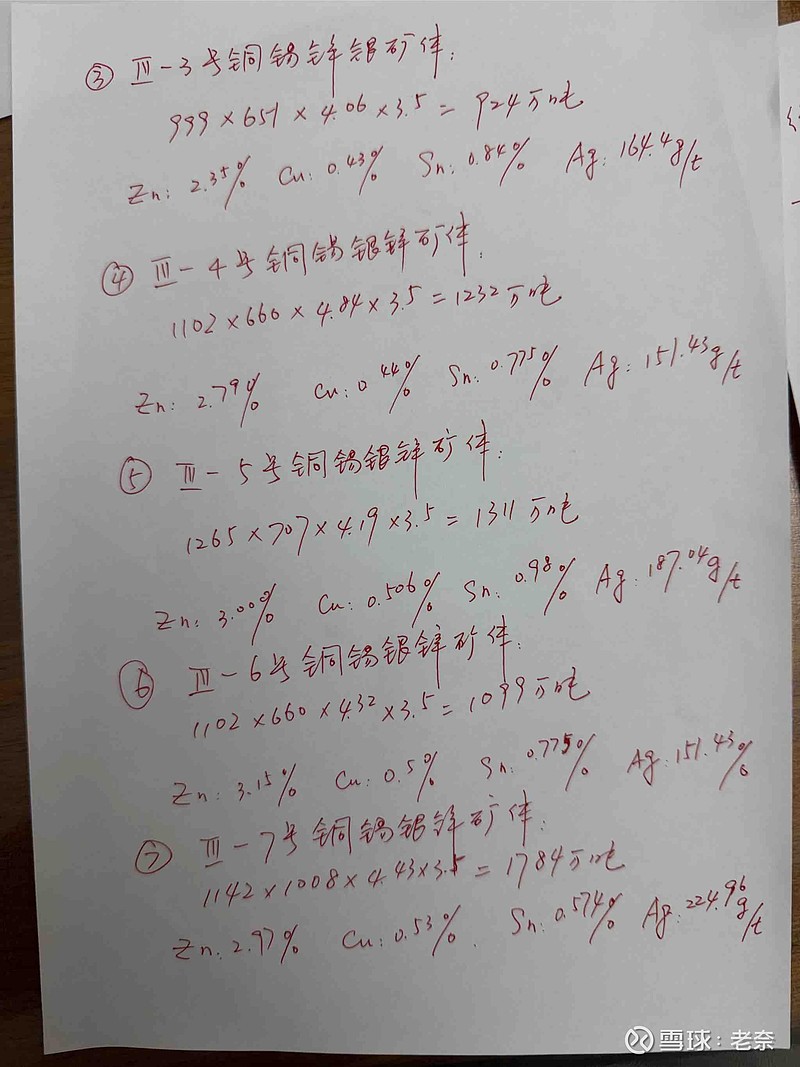 ③ Ⅲ-3号铜锡锌银矿体:
999×651×4.06×3.5=924万吨
Zn: 2.35% Cu: 0.43% Sn: 0.84% Ag: 164.4g/t
④ Ⅲ-4号铜锡银锌矿体:
1102×660×4.84×3.5=1232万吨
Zn: 2.79% Cu: 0.44% Sn: 0.775% Ag: 151.43g/t
⑤ Ⅲ-5号铜锡银锌矿体:
1265×707×4.19×3.5=1311万吨
Zn: 3.00% Cu: 0.506% Sn: 0.98% Ag: 187.04g/t
⑥ Ⅲ-6号铜锡银锌矿体:
1102×660×4.32×3.5=1099万吨
Zn: 3.15% Cu: 0.5% Sn: 0.775% Ag: 151.43%
⑦ Ⅲ-7号铜锡银锌矿体:
1142×1008×4.43×3.5=1784万吨
Zn: 2.97% Cu: 0.53%. Sn: 0.574% Ag: 224.96g/t
雪球:老奈